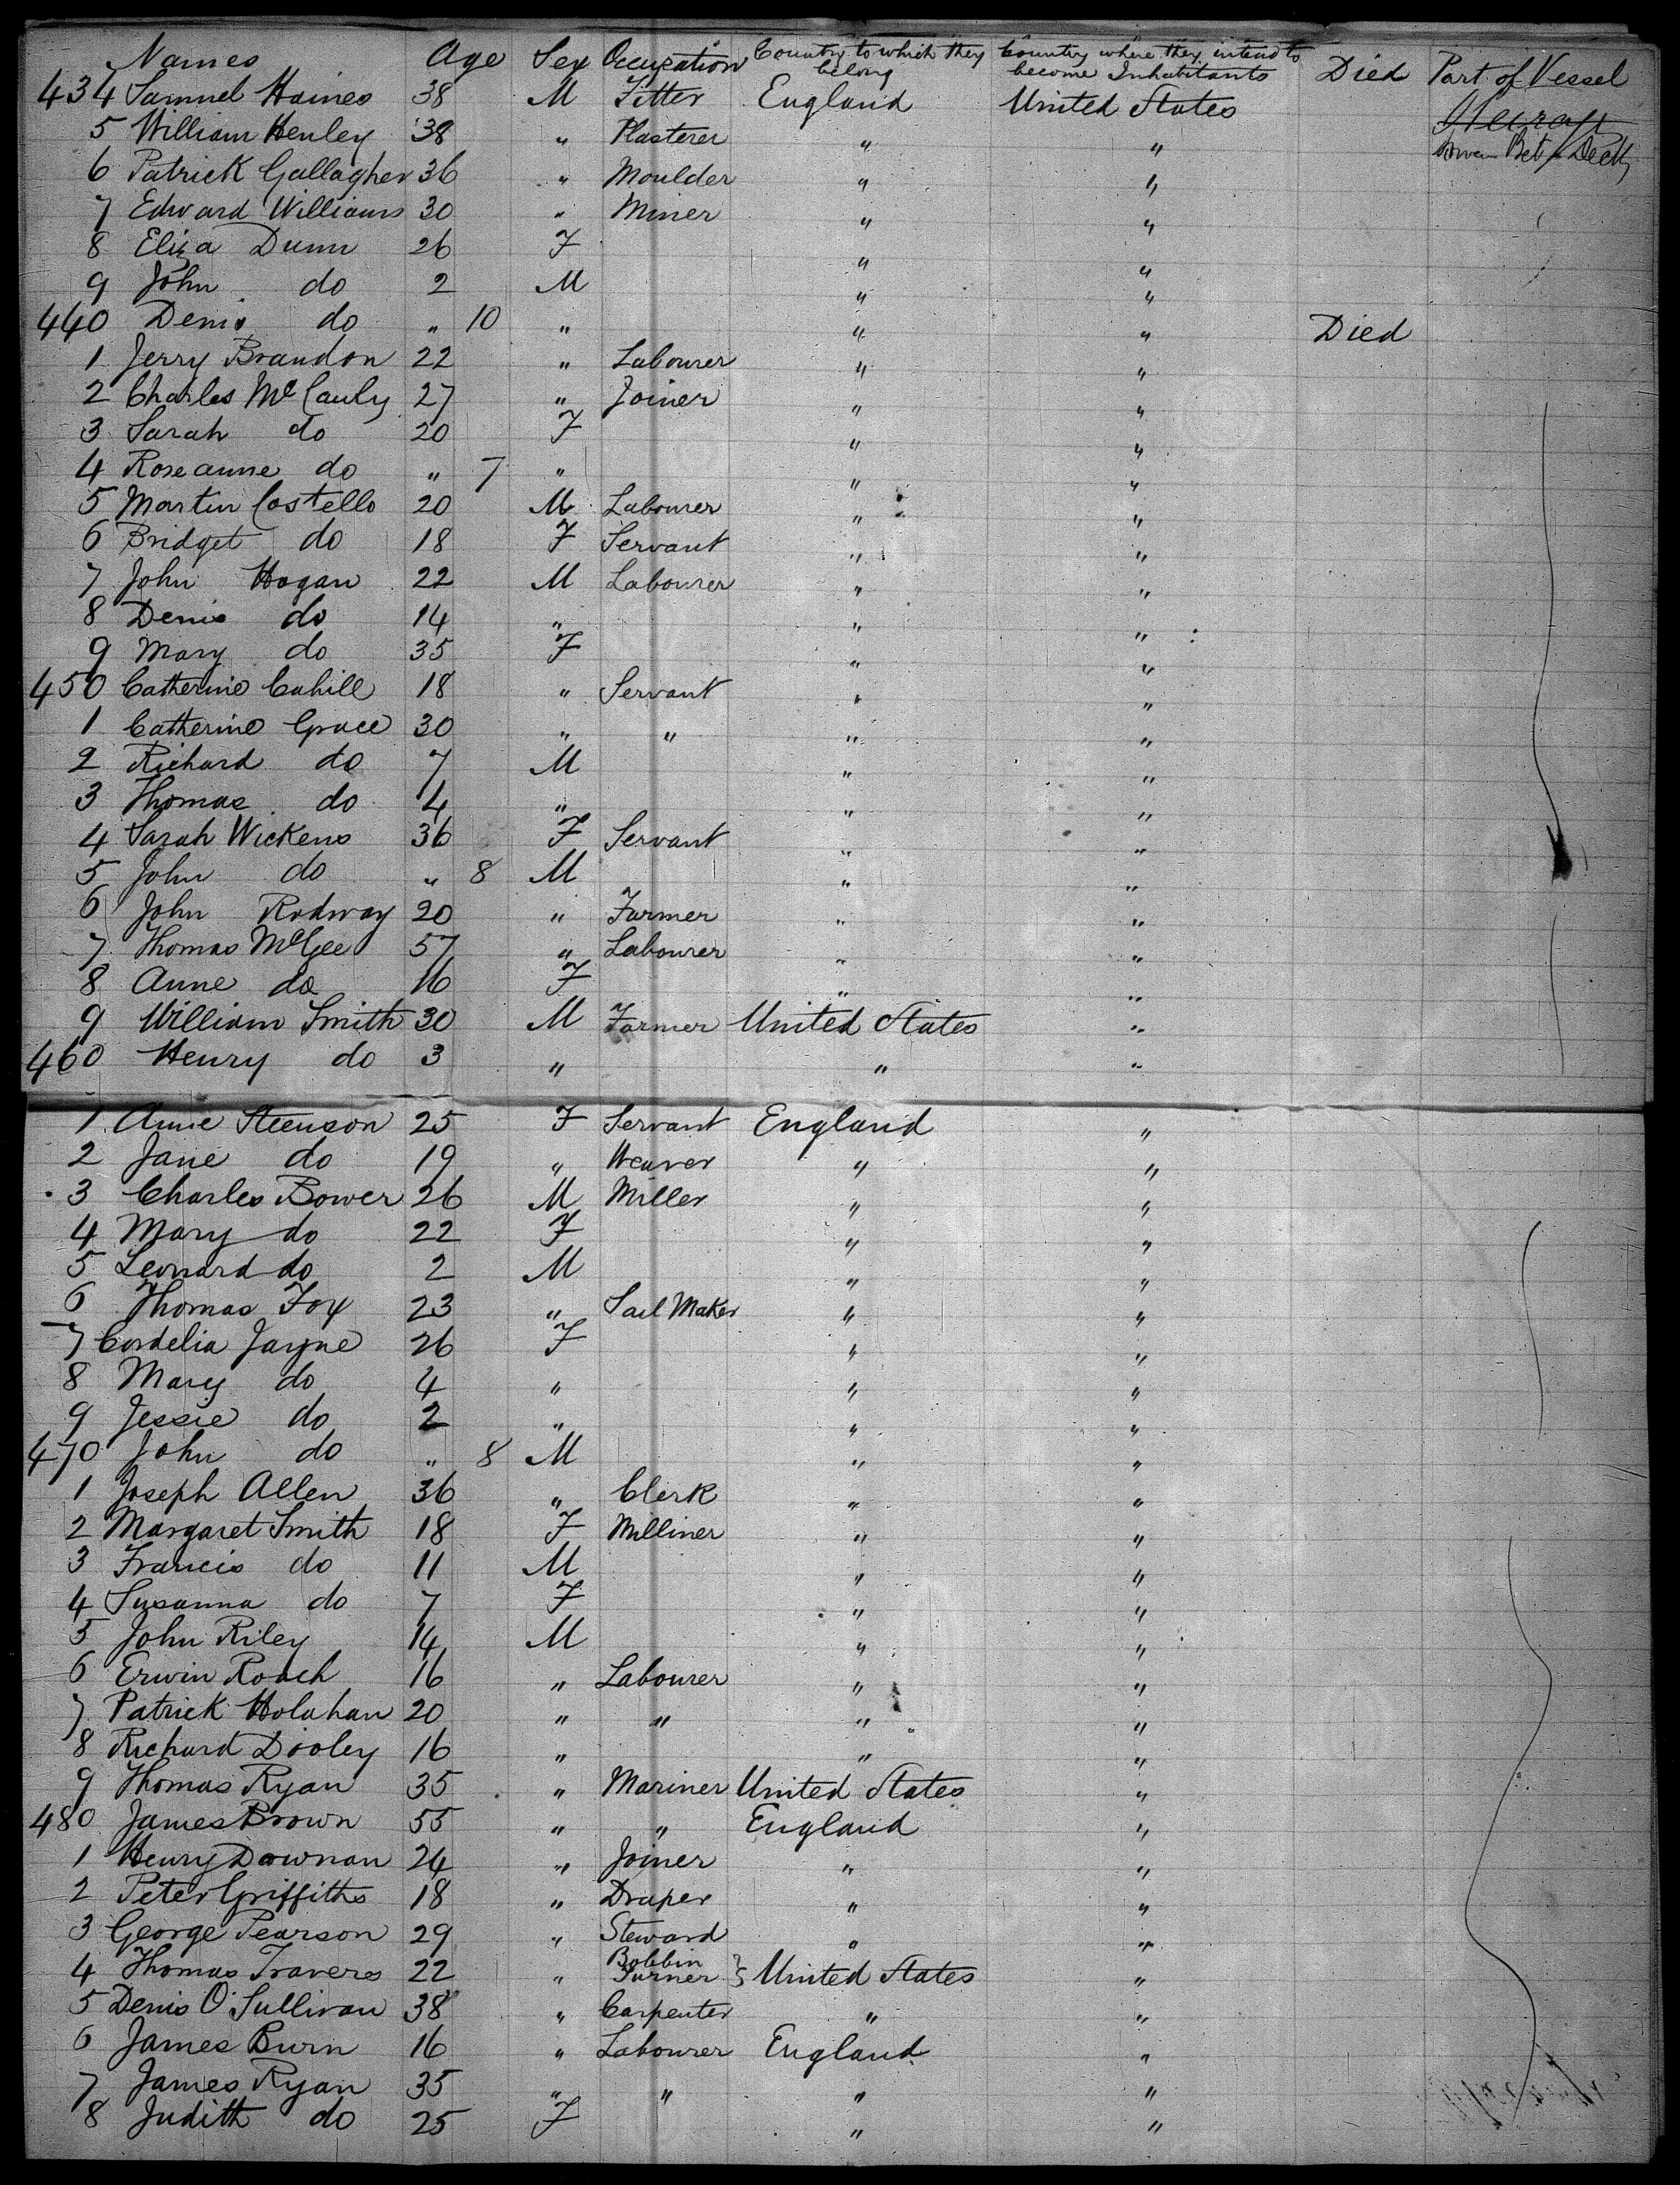 Names Age Sex Occupation Country to which they belong Country where they intend to become Inhabitants Died Part of Vessel
434 Samuel Haines 38 M Fitter England United States Steerage
5 William Henley 38 " Plasterer " " Bet Decks
6 Patrick Gallagher 36 " Moulder " "
7 Edward Williams 30 " Miner " "
8 Eliza Dunn 26 F " "
9 John do 2 M " "
440 Denis do " 10 " " " Died
1 Jerry Brandon 22 " Labourer " "
2 Charles McCauly 27 " Joiner " "
3 Sarah do 20 F " "
4 Roseanne do " 7 " " "
5 Martin Costello 20 M Labourer " "
6 Bridget do 18 F Servant " "
7 John Hogan 22 M Labourer " "
8 Denis do 14 " " "
9 Mary do 35 F " "
450 Catherine Cahill 18 " Servant " "
1 Catherine Grace 30 " " " "
2 Richard do 7 M " "
3 Thomas do 4 " " "
4 Sarah Wickens 36 F Servant " "
5 John do " 8 M " "
6 John Rodway 20 " Farmer " "
7 Thomas McGee 57 " Labourer " "
8 Anne do 16 F " "
9 William Smith 30 M Farmer United States "
460 Henry do 3 " " "
1 Anne Steenson 25 F Servant England "
2 Jane do 19 " Weaver " "
3 Charles Bower 26 M Miller " "
4 Mary do 22 F " "
5 Leonard do 2 M " "
6 Thomas Fox 23 " Sail Maker " "
7 Cordelia Jayne 26 F " "
8 Mary do 4 " " "
9 Jessie do 2 " " "
470 John do " 8 M " "
1 Joseph Allen 36 " Clerk " "
2 Margaret Smith 18 F Milliner " "
3 Francis do 11 M " "
4 Susanna do 7 F " "
5 John Riley 14 M " "
6 Erwin Roach 16 " Labourer " "
7 Patrick Holahan 20 " " " "
8 Richard Dooley 16 " " "
9 Thomas Ryan 35 " Mariner United States "
480 James Brown 55 " " England "
1 Henry Downan 24 " Joiner " "
2 Peter Griffiths 18 " Draper " "
3 George Pearson 29 " Steward " "
4 Thomas Travers 22 " Bobbin Turner } United States "
5 Denis O'Sullivan 38 " Carpenter " "
6 James Burn 16 " Labourer England "
7 James Ryan 35 " " " "
8 Judith do 25 F " "